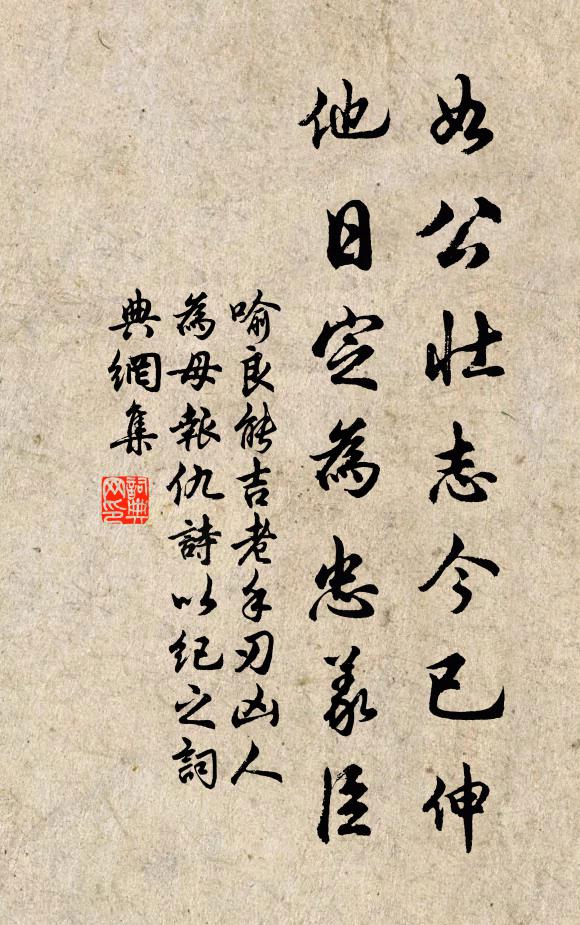 如公壯志今已伸
他日定為忠義臣
喻良能吉老手刃凶人
為母報仇詩以紀之詞
典網集
詞典
网印